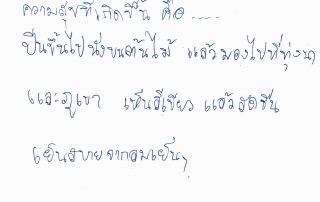 ความสุขที่เกิดขึ้น คือ....
ปีนขึ้นไปนั่งบนต้นไม้ แล้วมองไปที่ทุ่งนา
และภูเขา เห็นสีเขียว แล้วสดชื่น
เย็นสบายจากลมเย็นๆ